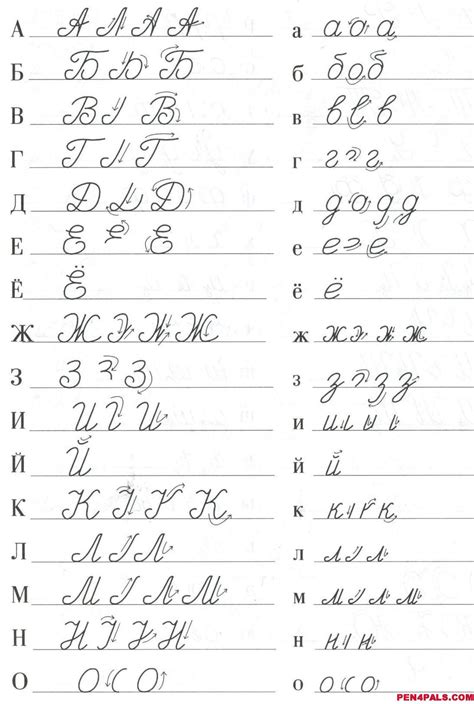 А А Л А А а а о а
Б Б Б б б о б
В В В в в в
Г Г Г г г г
Д Д Д д д о д д
Е Е Е е е е
Ё Ё ё ё
Ж Ж Ж ж ж ж
З З З з з з з
И И И и и и
Й Й й й
К К К к к к
Л Л Л л л л
М М М м м м
Н Н Н н н н
О О О о о о
PEN4PALS.COM